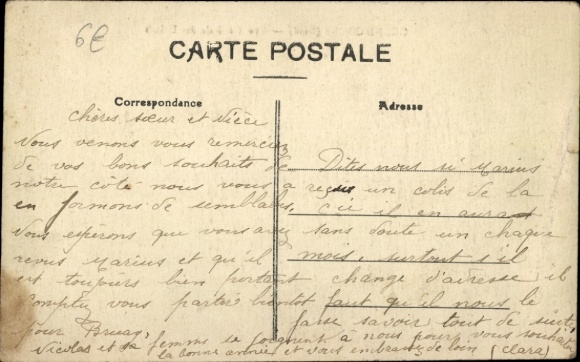 6€
CARTE POSTALE
Correspondance
Chères sœur et Nièce
Nous venons vous remercier
de vos bons souhaits de
notre côté nous vous
en formons de semblables.
Nous espérons que vous avez
revus Marius et qu'il
est toujours bien portant
compte vous partir bientot
pour
Adresse
Dites nous si Marius
a reçus un colis de la
il en aurat
sans doute un chaque
mois, surtout s'il
change d'adresse il
faut qu'il nous le
fasse savoir tout de suite,
Nicolas et sa femme se joignent à nous pour vous souhaiter
la bonne année et vous embrasse de loin (Clare)